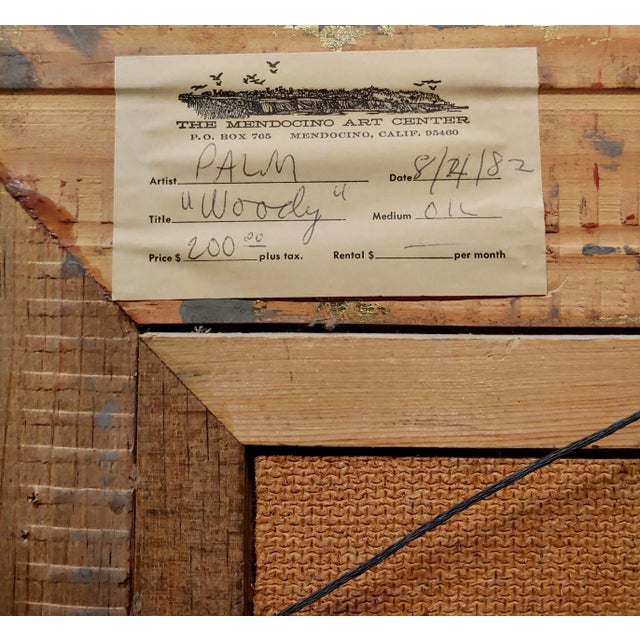 THE MENDOCINO ART CENTER
P.O. BOX 765 MENDOCINO, CALIF. 95460
Artist PALM Date 8/4/82
Title "Woody" Medium OIL
Price $ 200.00 plus tax. Rental $ — per month